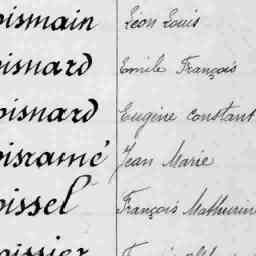 oismain Léon Louis
oisnard Emile François
oisnard Eugène Constant
oisramé Jean Marie
oissel François Mathurin
oissier